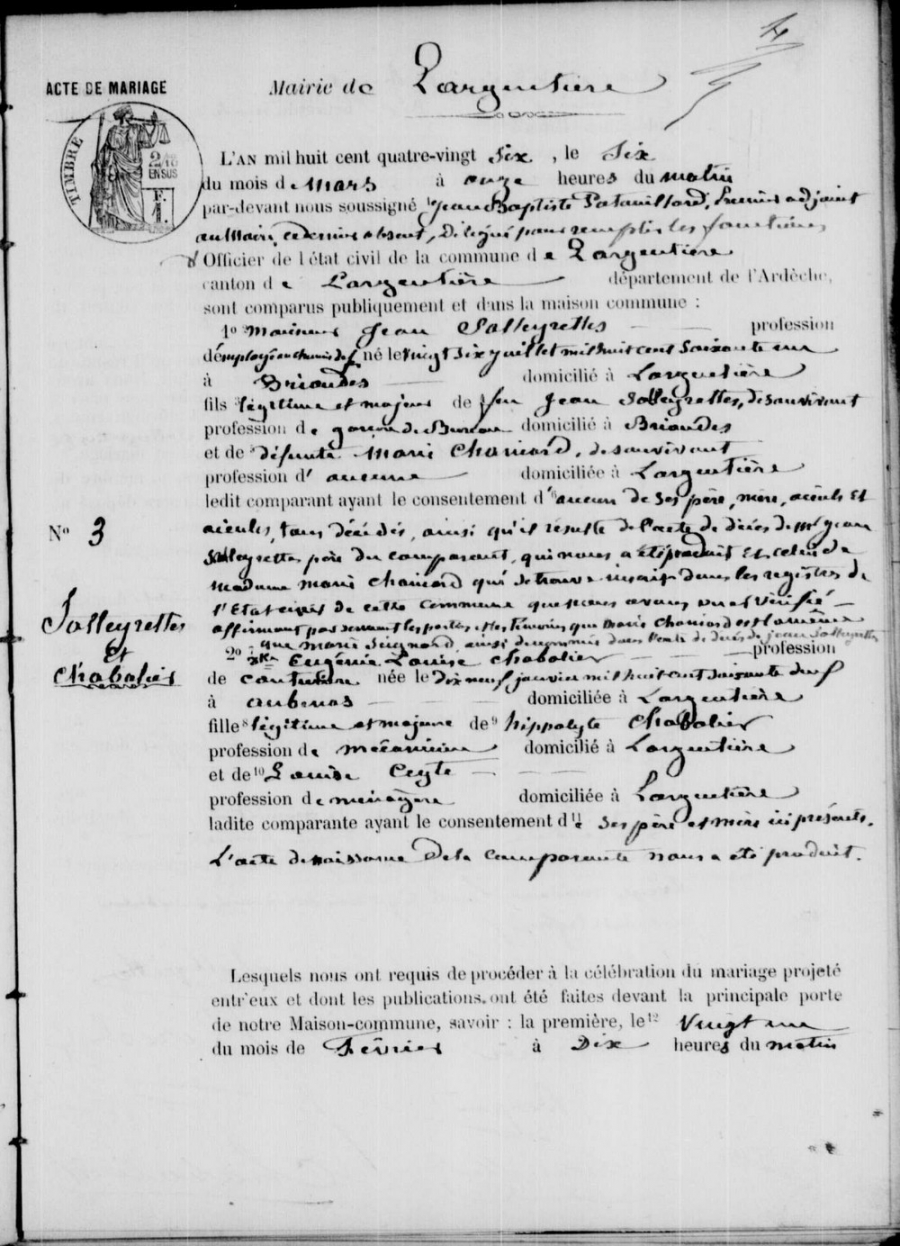 4
ACTE DE MARIAGE
Mairie de Largentière
TIMBRE
2/10
EN SUS
F.
1.
L'AN mil huit cent quatre-vingt Six, le Six
du mois de Mars à onze heures du matin
par-devant nous soussigné Jean Baptiste Patouillard, Premier adjoint
au Maire, ce dernier absent, Délégué pour remplir les fonctions
d'Officier de l'état civil de la commune de Largentière
canton de Largentière département de l'Ardèche,
sont comparus publiquement et dans la maison commune :
1o Monsieur Jean Salleyrettes profession
d'employé en chemin de f. né le vingt six juillet mil huit cent soixante un
à domicilié à Largentière
fils légitime et majeur de feu Jean Salleyrettes, de son vivant
profession de garçon de Bureau domicilié à
et de défunte Marie Chaniard, de son vivant
profession d' aucune domiciliée à Largentière
ledit comparant ayant le consentement d' aucun de ses père, mère, aieuls et
aieules, tous décédés, ainsi qu'il résulte de l'acte de décès de Mr Jean
Salleyrettes père du comparant, qui nous a été produit et celui de
madame Marie Chaniard qui se trouve inscrit dans les registres de
l'Etat civil de cette commune que nous avons vu et vérifié
affirmant par serment les parties et les témoins que Marie Chaniard est la même
que Marie Seignard, ainsi dénommée dans l'acte de décès de Jean Salleyrettes
No 3
Salleyrettes
et
Chabalier
2o Eugénie Louise Chabalier profession
de couturière née le dix neuf janvier mil huit cent soixante neuf
à Aubenas domiciliée à Largentière
fille légitime et majeure de hippolyte Chabalier
profession de mécanicien domicilié à Largentière
et de Louise Ceyte
profession de ménagère domiciliée à Largentière
ladite comparante ayant le consentement de ses père et mère ici présents.
L'acte de naissance de la comparante nous a été produit.
Lesquels nous ont requis de procéder à la célébration du mariage projeté
entr'eux et dont les publications ont été faites devant la principale porte
de notre Maison-commune, savoir : la première, le Vingt un
du mois de Février à Dix heures du matin